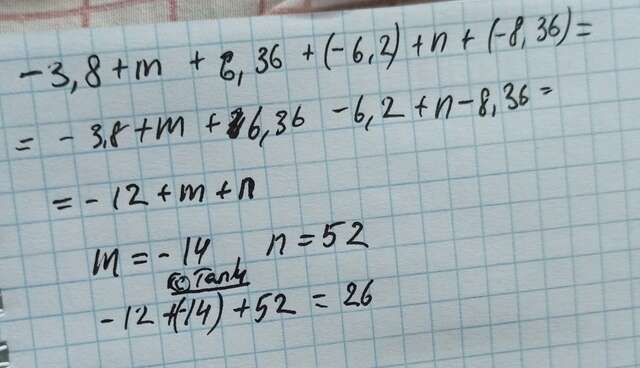 -3,8 + m + 6,36 + (-6,2) + n + (-8,36) =
= -3,8 + m + 6,36 - 6,2 + n - 8,36 =
= -12 + m + n
m = -14 n = 52
© Tank
-12 + (-14) + 52 = 26